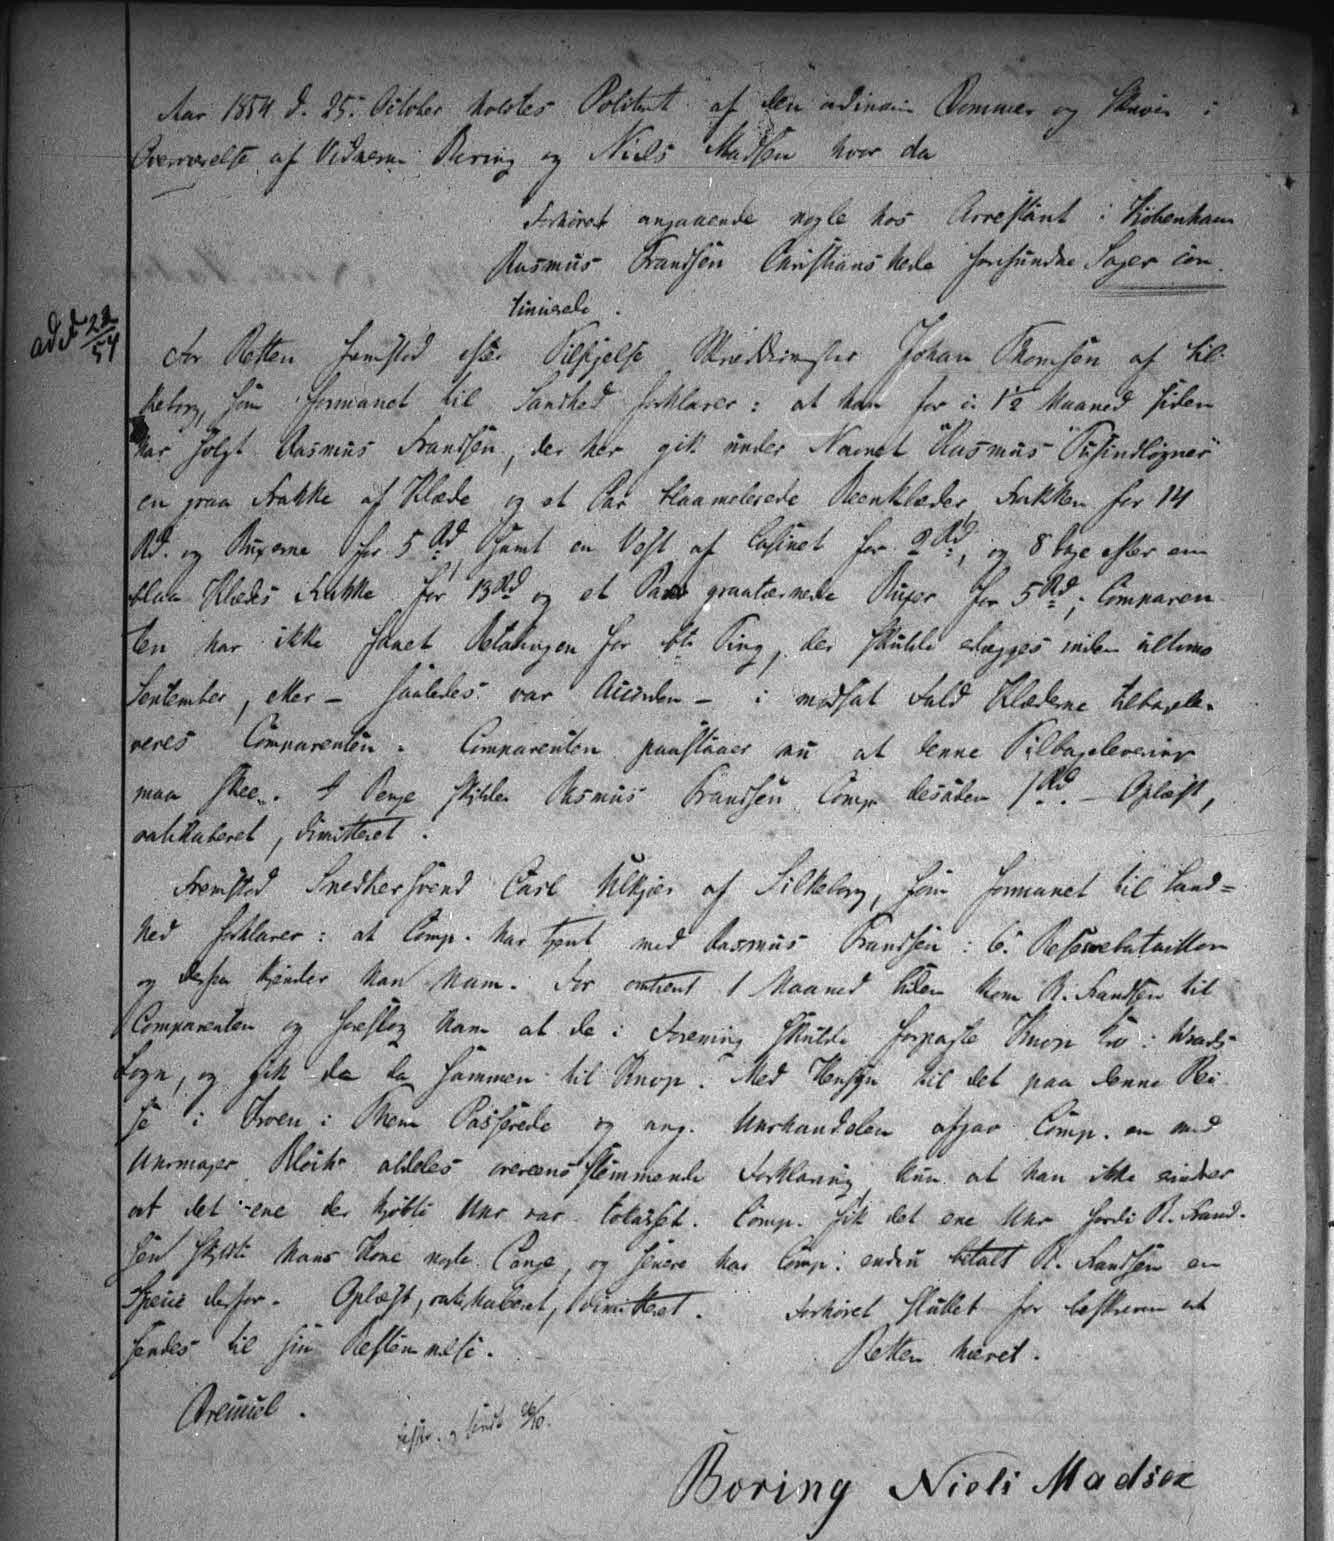 Aar 1854 d. 25. October holdtes Politiret af den ordinaire Dommer og Skriver i
Overværelse af Vidnerne Boring og Niels Madsen hvor da
Forhøret angaaende nogle hos Arrestant i Kjøbenhavn
Rasmus Frandsen Christianshede forefundne Sager con-
tinuerede.
ad 22/54
For Retten fremstod efter Tilsigelse Skræddermester Johan Thomsen af Sil-
keborg, som formanet til Sandhed forklarer: at han for c. 1½ Maaned siden
har solgt Rasmus Frandsen, der her gik under Navnet "Rasmus Tusindløgner"
en graa Frakke af Klæde og et Par blaamelerede Beenklæder, Frakken for 14
Rd. og Buxerne for 5 Rd, samt en Vest af Casinet for 2 Rd, og 8 Dage efter en
blaa Klædes Frakke for 13 Rd og et Par graatærnede Buxer for 5 Rd; Comparen-
ten har ikke faaet Betalingen for dte Ting, der skulde erlægges inden ultimo
September, eller - saaledes var Accorden - i modsat Fald Klæderne tilbagele-
veres Comparenten. Comparenten paastaaer nu at denne Tilbagelevering
maa skee. I Penge skylder Rasmus Frandsen Comp. desuden 1 Rd. - Oplæst,
ratihaberet, dimitteret.
Fremstod Snedkersvend Carl Ulkjær af Silkeborg, som formanet til Sand=
hed forklarer: at Comp. har tjent med Rasmus Frandsen i 6. Reservebataillon
og derfra kjender han ham. For omtrent 1 Maaned siden kom R. Frandsen til
Comparenten og foreslog ham at de i Forening skulde forpagte Knop Kro i Vrads
Sogn, og gik de da sammen til Knop. Med Hensyn til det paa denne Rei-
se i Kroen i Them Passerede og ang. Uhrhandelen afgav Comp. en med
Uhrmager Bloch aldeles overeensstemmende Forklaring, kun at han ikke erindrer
at det ene der kjøbte Uhr var . Comp. fik det ene Uhr fordi R. Frand-
sen skyldte hans Kone nogle Penge, og senere har Comp. endnu betalt R. Frandsen en
Specie derfor. Oplæst, ratihaberet, dimitteret. Forhøret sluttet for beskreven at
sendes til sin Bestemmelse. Retten hævet.
Drewsel.
beskr. og sendt 26/10.
Boring Niels Madsen